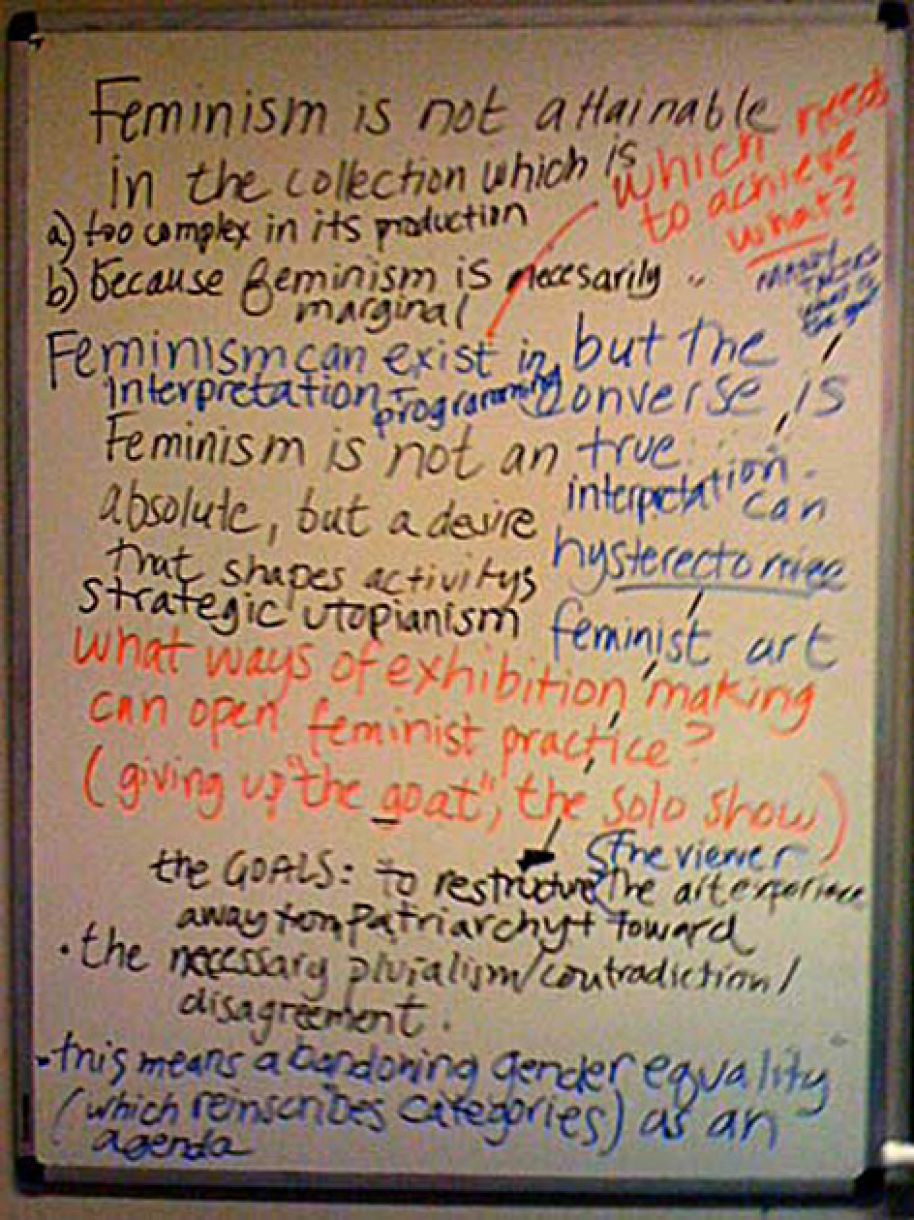 Feminism is not attainable
in the collection which is
which needs
to achieve
what?
a) too complex in its production
b) because feminism is necesarily ..
marginal
Feminism can exist in
interpretation - programming
but the
converse is
true.
interpretation can
hysterectomize
feminist art
Feminism is not an
absolute, but a desire
that shapes activitys
strategic utopianism
what ways of exhibition making
can open feminist practice?
(giving up "the goat", the solo show)
the GOALS: to restructure the art experience
& the viewer
away from patriarchy + toward
· the necessary pluralism/contradiction/
disagreement.
- this means abandoning gender equality
(which reinscribes categories) as an
agenda